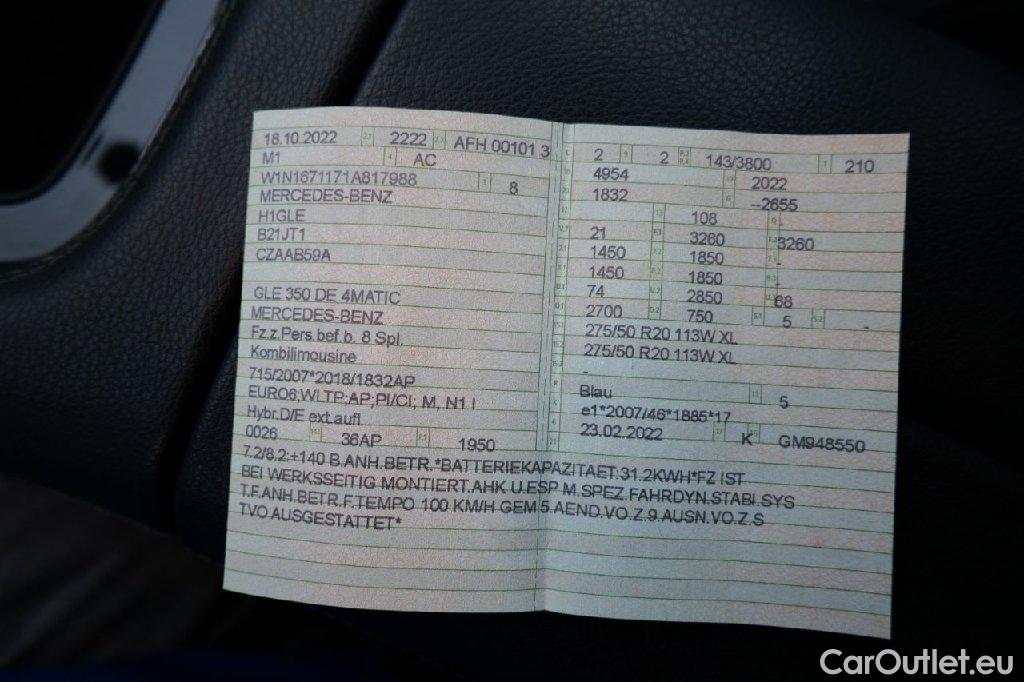 18.10.2022 2222 AFH 00101 3
M1 AC
W1N1671171A817988 8
MERCEDES-BENZ
H1GLE
B21JT1
CZAAB59A
GLE 350 DE 4MATIC
MERCEDES-BENZ
Fz.z.Pers.bef.b. 8 Spl.
Kombilimousine
715/2007*2018/1832AP
EURO6;WLTP;AP;PI/CI; M, N1 I
Hybr.D/E ext.aufl
0026 36AP 1950
2 2 143/3800 210
4954 2022
1832 --2655
108
21 3260 3260
1450 1850 -
1450 1850 -
74 2850 68
2700 750 5 -
275/50 R20 113W XL
275/50 R20 113W XL
-
Blau 5
e1*2007/46*1885*17
23.02.2022 K GM948550
7.2/8.2:+140 B.ANH.BETR.*BATTERIEKAPAZITAET:31.2KWH*FZ IST
BEI WERKSSEITIG MONTIERT.AHK U.ESP M.SPEZ.FAHRDYN.STABI.SYS
T.F.ANH.BETR.F.TEMPO 100 KM/H GEM 5.AEND.VO.Z.9.AUSN.VO.Z.S
TVO AUSGESTATTET*
CarOutlet.eu